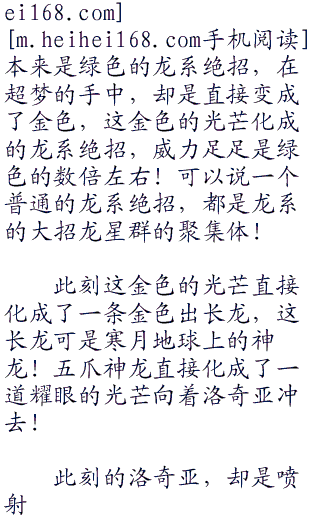 ei168.com]
[m.heihei168.com手机阅读]
本来是绿色的龙系绝招，在
超梦的手中，却是直接变成
了金色，这金色的光芒化成
的龙系绝招，威力足足是绿
色的数倍左右！可以说一个
普通的龙系绝招，都是龙系
的大招龙星群的聚集体！
此刻这金色的光芒直接
化成了一条金色出长龙，这
长龙可是寒月地球上的神
龙！五爪神龙直接化成了一
道耀眼的光芒向着洛奇亚冲
去！
此刻的洛奇亚，却是喷
射